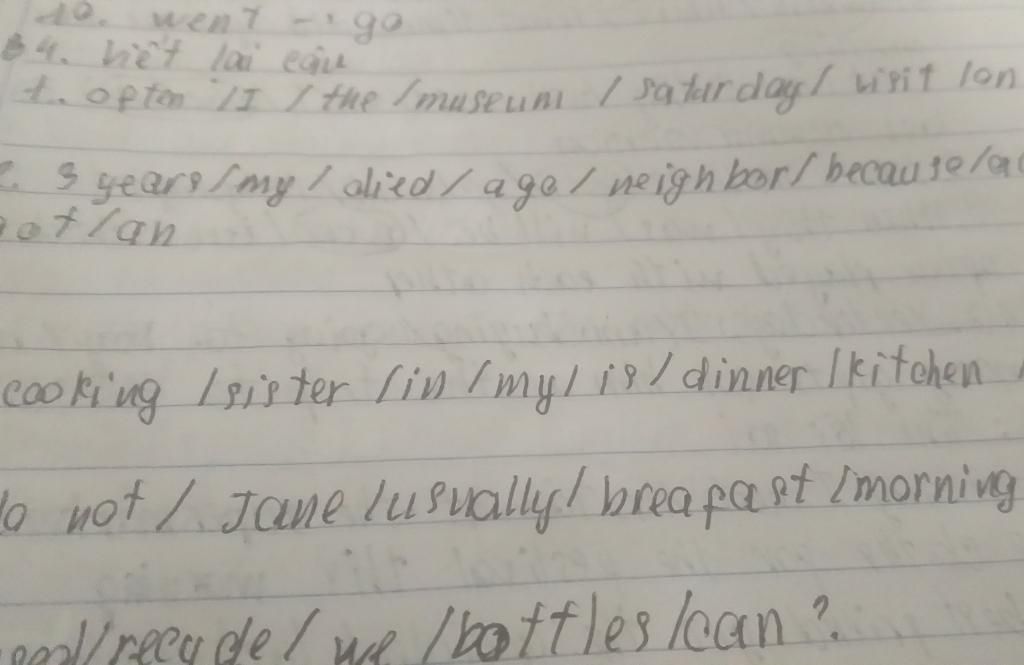 10. went → go
4. viết lại câu
1. often / I / the / museum / saturday / visit / on
2. 3 years / my / died / ago / neighbor / because /
of / an
cooking / sister / in / my / is / dinner / kitchen /
not / Jane / usually / breafast / morning
/ recycle / we / bottles / can ?